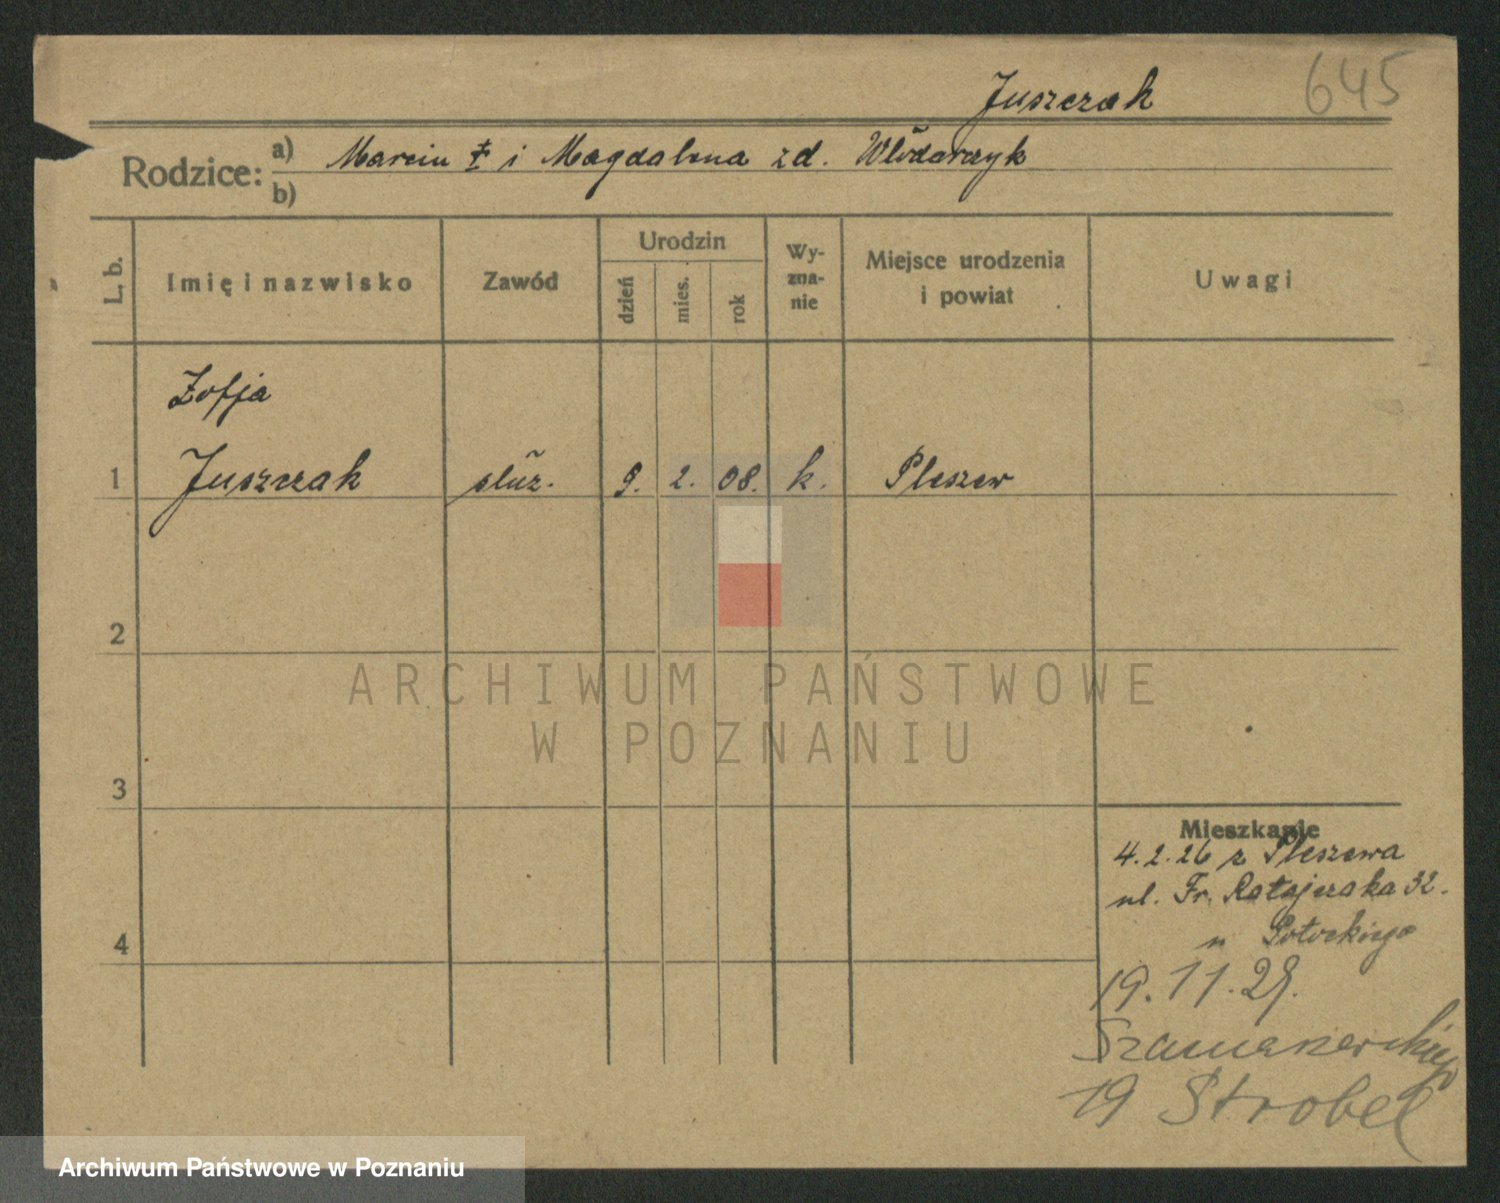 Juszczak 645
Rodzice: a) Marcin ‡ i Magdalena zd. Włodarczyk
b)
L. b. Imię i nazwisko Zawód Urodzin dzień mies. rok Wy-zna-nie Miejsce urodzenia i powiat Uwagi
Zofja
1 Juszczak służ. 9. 2. 08. k. Pleszew
2
ARCHIWUM PAŃSTWOWE
W POZNANIU
3
Mieszkanie
4.2.26 z Pleszewa
ul. Fr. Ratajczaka 32.
4 u Potockiego
19.11.29.
Szamarzewskiego
19 Strobel
Archiwum Państwowe w Poznaniu